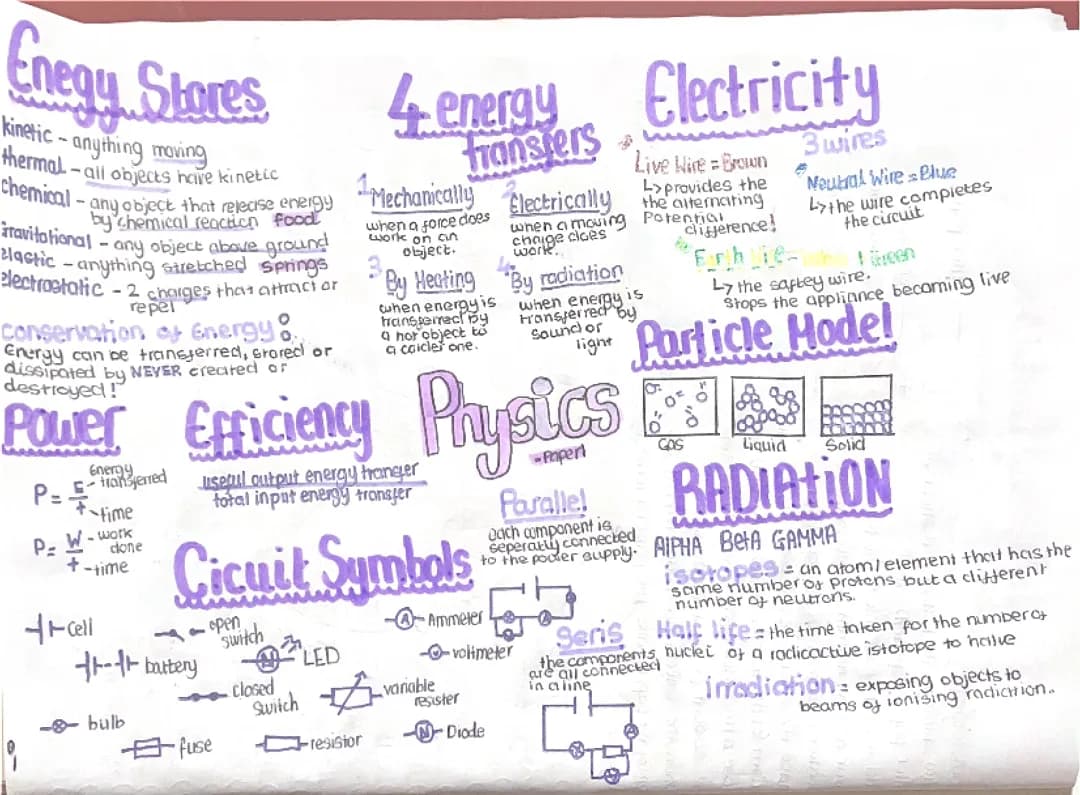 Enegy Stores
kinetic - anything moving
thermal - all objects have kinetic
chemical - any object that release energy
by chemical reaction food
gravitational - any object above ground
elastic - anything stretched springs
electrostatic - 2 charges that attract or
repel
conservation of Energy:
Energy can be transferred, stored or
dissipated by NEVER created or
destroyed!
4 energy
transfers
1 Mechanically
when a force does
work on an
object.
2 Electrically
when a moving
charge does
work.
3 By Heating
when energy is
transferred by
a hot object to
a colder one.
4 By radiation
when energy is
transferred by
sound or
light
Electricity
3 wires
Live Wire = Brown
↳ provides the
the alternating
Potential
difference!
Neutral Wire = Blue
↳ the wire completes
the circuit
Earth Wire - Green
↳ the saftey wire.
Stops the appliance becoming live
Particle Model
Gas Liquid Solid
Power
P = E/t
Energy transferred
time
P = W/t
work done
time
Efficiency
useful output energy tranfer
total input energy transfer
Physics
- Paper1
Parallel
each component is
seperatly connected
to the power supply.
Seris
the components
are all connected
in a line
Cicuit Symbols
Cell
open
switch
A Ammeter
battery
LED
V voltmeter
closed
switch
variable
resister
bulb
fuse
resistor
Diode
RADIATION
AlPHA BeTA GAMMA
isotopes = an atom/element that has the
same number of protons but a different
number of neutrons.
Half life = the time taken for the number of
nuclei of a radioactive istotope to halve
irradiation = exposing objects to
beams of ionising radiation..